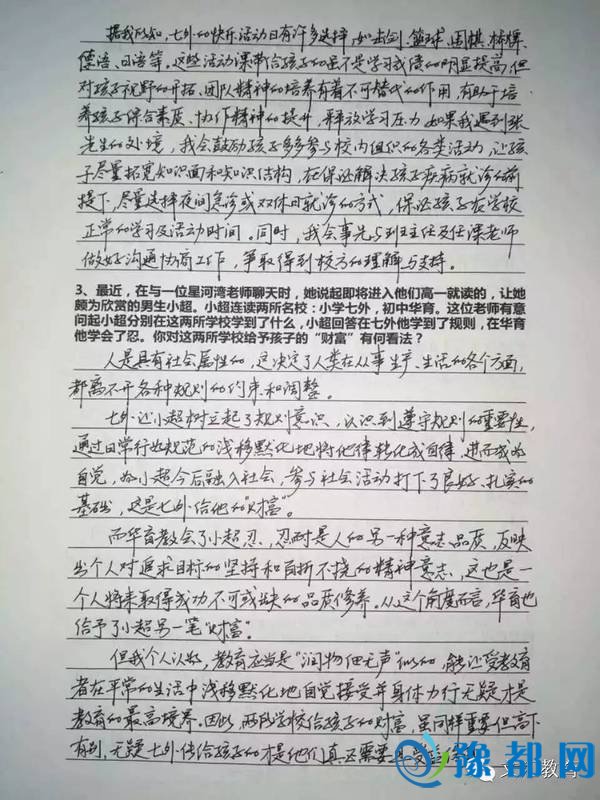 据我所知，七外的快乐活动日有许多选择，如击剑、篮球、围棋、桥牌、
德语、日语等。这些活动课带给孩子的虽不是学习成绩的明显提高，但
对孩子视野的开拓、团队精神的培养有着不可替代的作用，有助于培
养孩子综合素质、协作精神的提升，释放学习压力。如果我遇到张
先生的处境，我会鼓励孩子多多参与校内组织的各类活动，让孩
子尽量拓宽知识面和知识结构，在保证解决孩子疾病就诊的前
提下，尽量选择夜间急诊或双休日就诊的方式，保证孩子在学校
正常的学习及活动时间。同时，我会事先与班主任及任课老师
做好沟通协商工作，争取得到校方的理解与支持。
3、最近，在与一位星河湾老师聊天时，她说起即将进入他们高一就读的，让她
颇为欣赏的男生小超。小超连读两所名校：小学七外，初中华育。这位老师有意
问起小超分别在这两所学校学到了什么，小超回答在七外他学到了规则，在华育
他学会了忍。你对这两所学校给予孩子的“财富”有何看法？
人是具有社会属性的，这决定了人类在从事生产、生活的各个方面，
都离不开各种规则的约束和调整。
七外让小超树立起了规则意识，认识到遵守规则的重要性，
通过日常行如规范的浅移默化地将他律转化成自律，进而成为
自觉，为小超今后融入社会，参与社会活动打下了良好、扎实的
基础，这是七外给他的“财富”。
而华育教会了小超忍，忍耐是人的另一种意志品质，反映
出个人对追求目标的坚持和百折不挠的精神意志，这也是一
个人将来取得成功不可或缺的品质修养。从这个角度而言，华育也
给予了小超另一笔“财富”。
但我个人认为，教育应当是“润物细无声”似的，能让受教育
者在平常的生活中浅移默化地自觉接受并身体力行无疑才是
教育的最高境界。因此，两所学校给孩子的财富，虽同样重要但高下
有别，无疑七外传给孩子的才是他们真正需要
豫都网